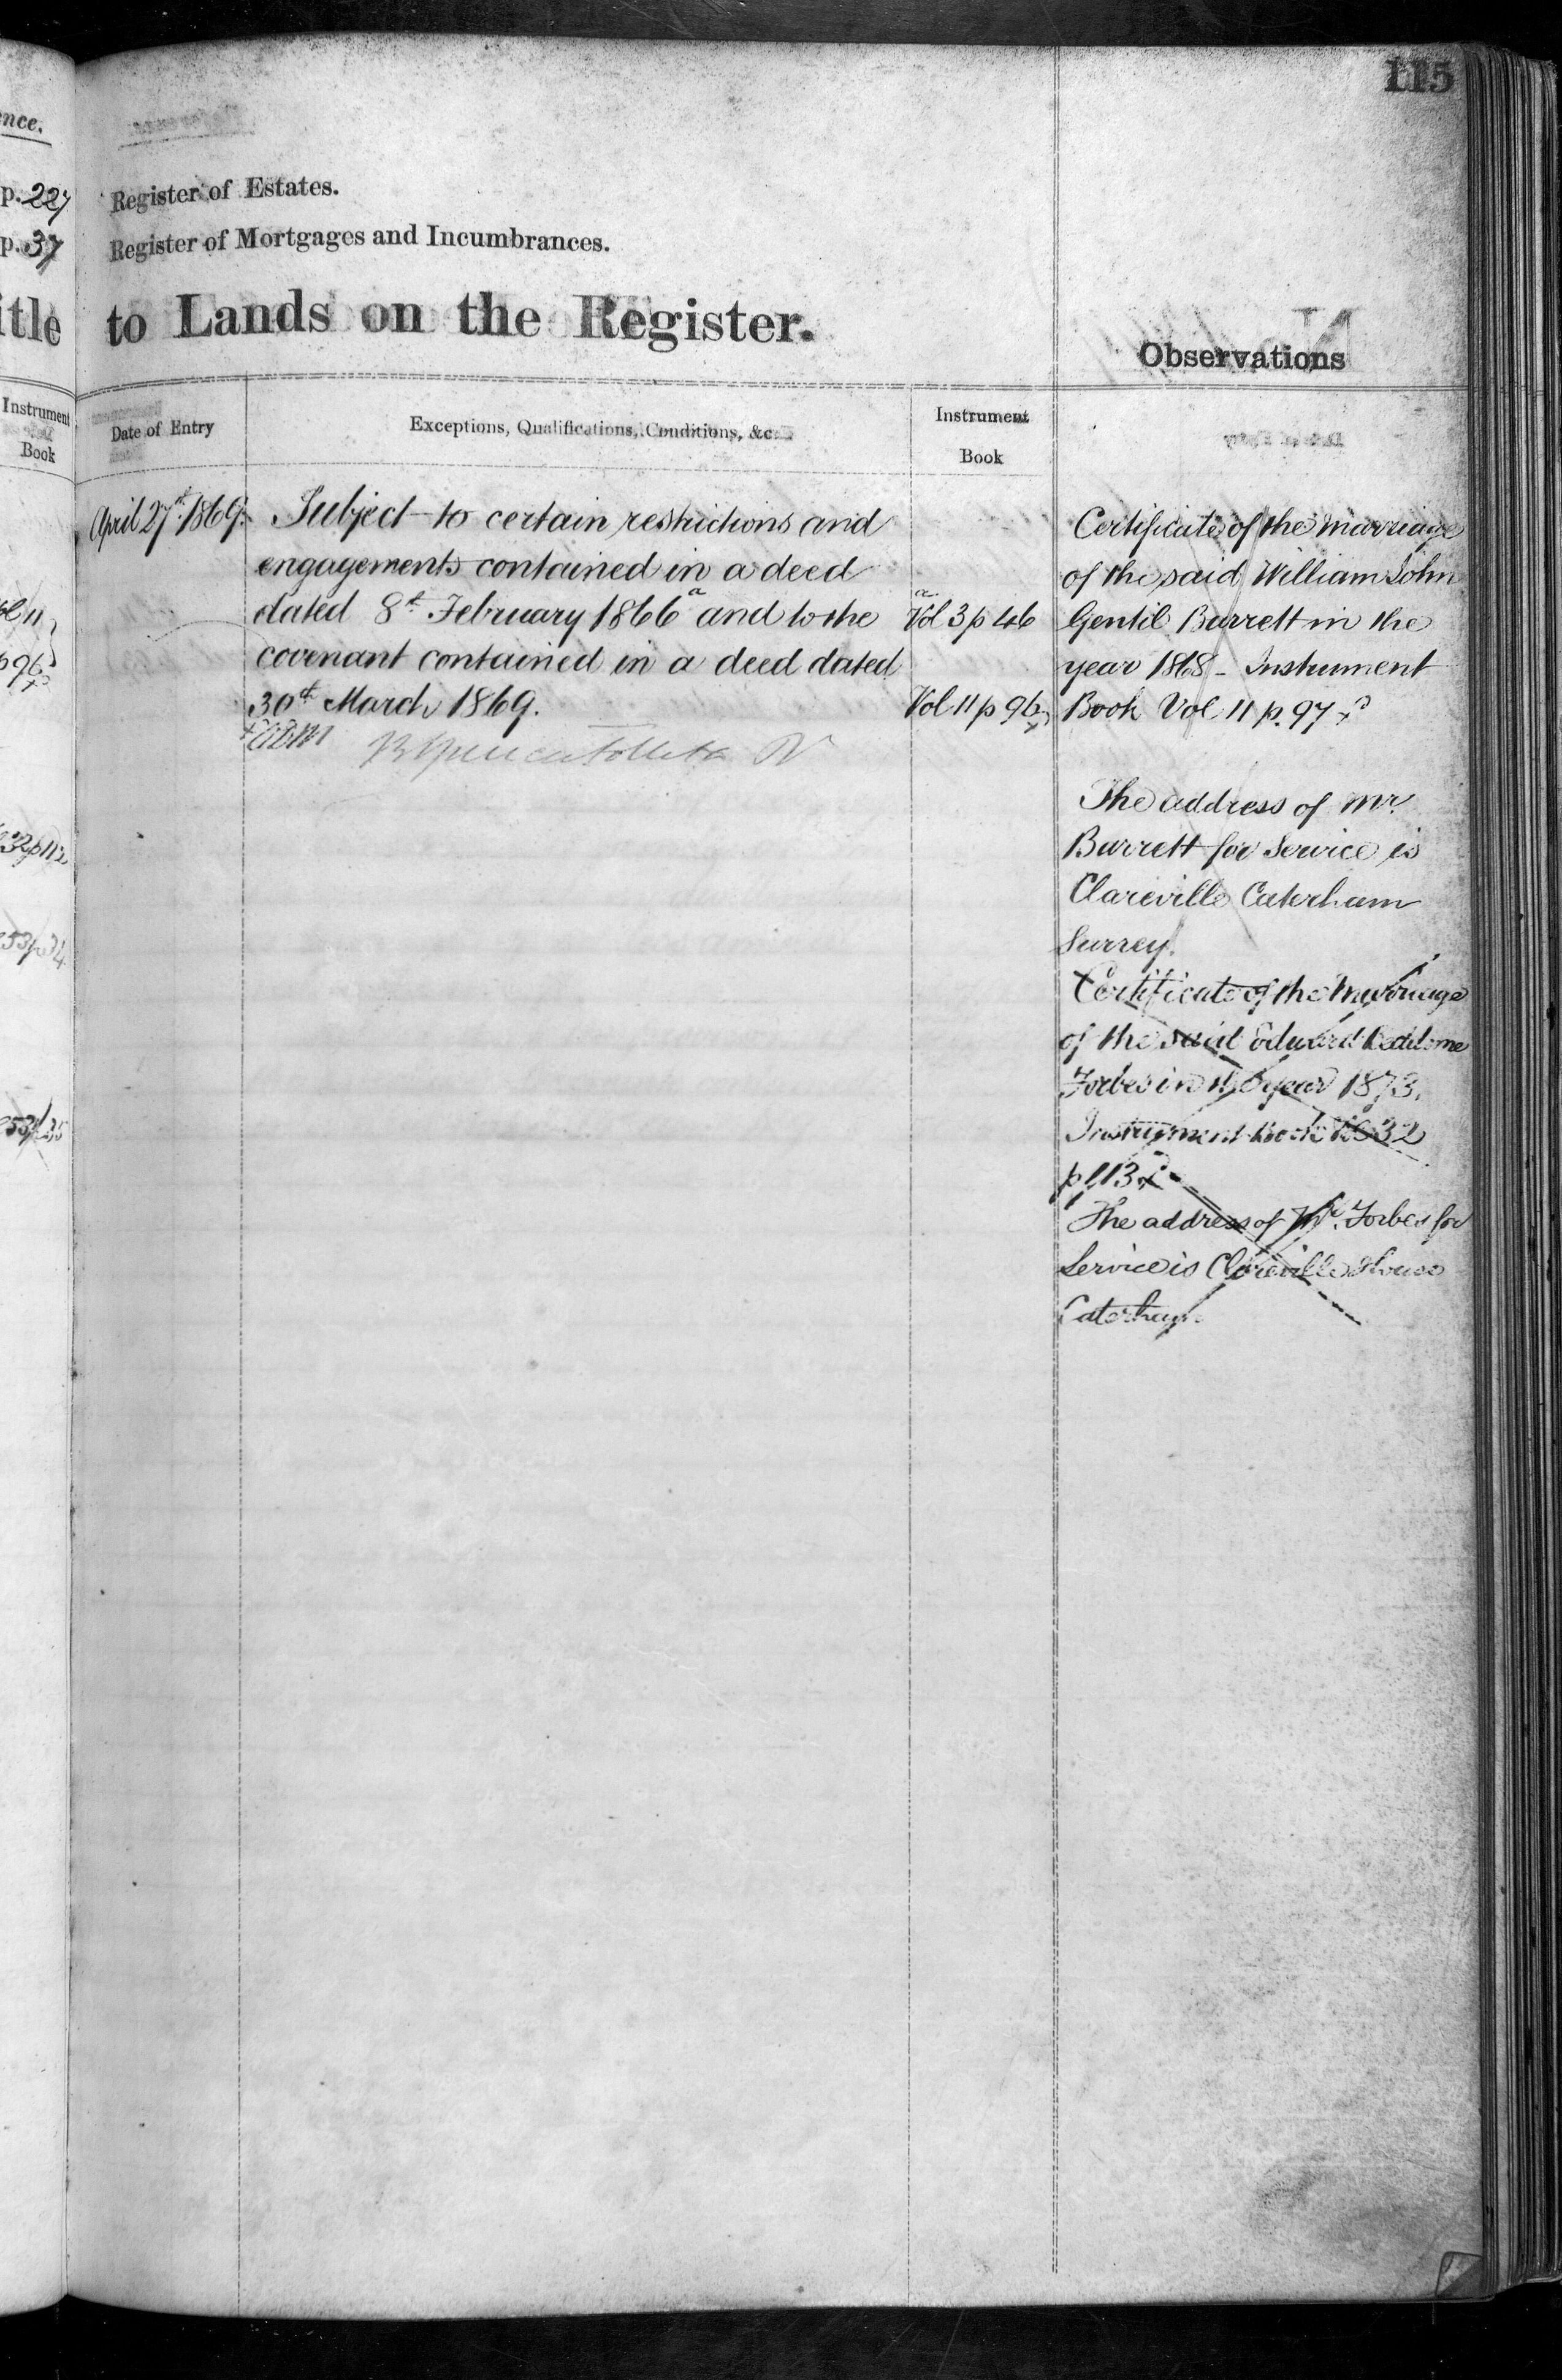 115
ence.
p. 227
p. 37
itle
Instrument
Book
p 96
32 p 112
53 p 34
53 p 35
Register of Estates.
Register of Mortgages and Incumbrances.
to Lands on the Register.
Observations
Date of Entry
Exceptions, Qualifications, Conditions, &c.
Instrument
Book
April 27th 1869.
Subject to certain restrictions and
engagements contained in a deed
dated 8th February 1866 a and to the
covenant contained in a deed dated
30th March 1869.
a.
Vol 3 p 46
Vol 11 p 96
Certificate of the marriage
of the said William John
Gentil Burrett in the
year 1868 - Instrument
Book Vol 11 p. 97
The address of Mr.
Burrett for Service is
Clareville Caterham
Surrey.
Certificate of the Marriage
of the said Edward
Forbes in the year 1873.
Instrument Book 32
p 113
The address of Mr. Forbes for
Service is Clareville House
Caterham.